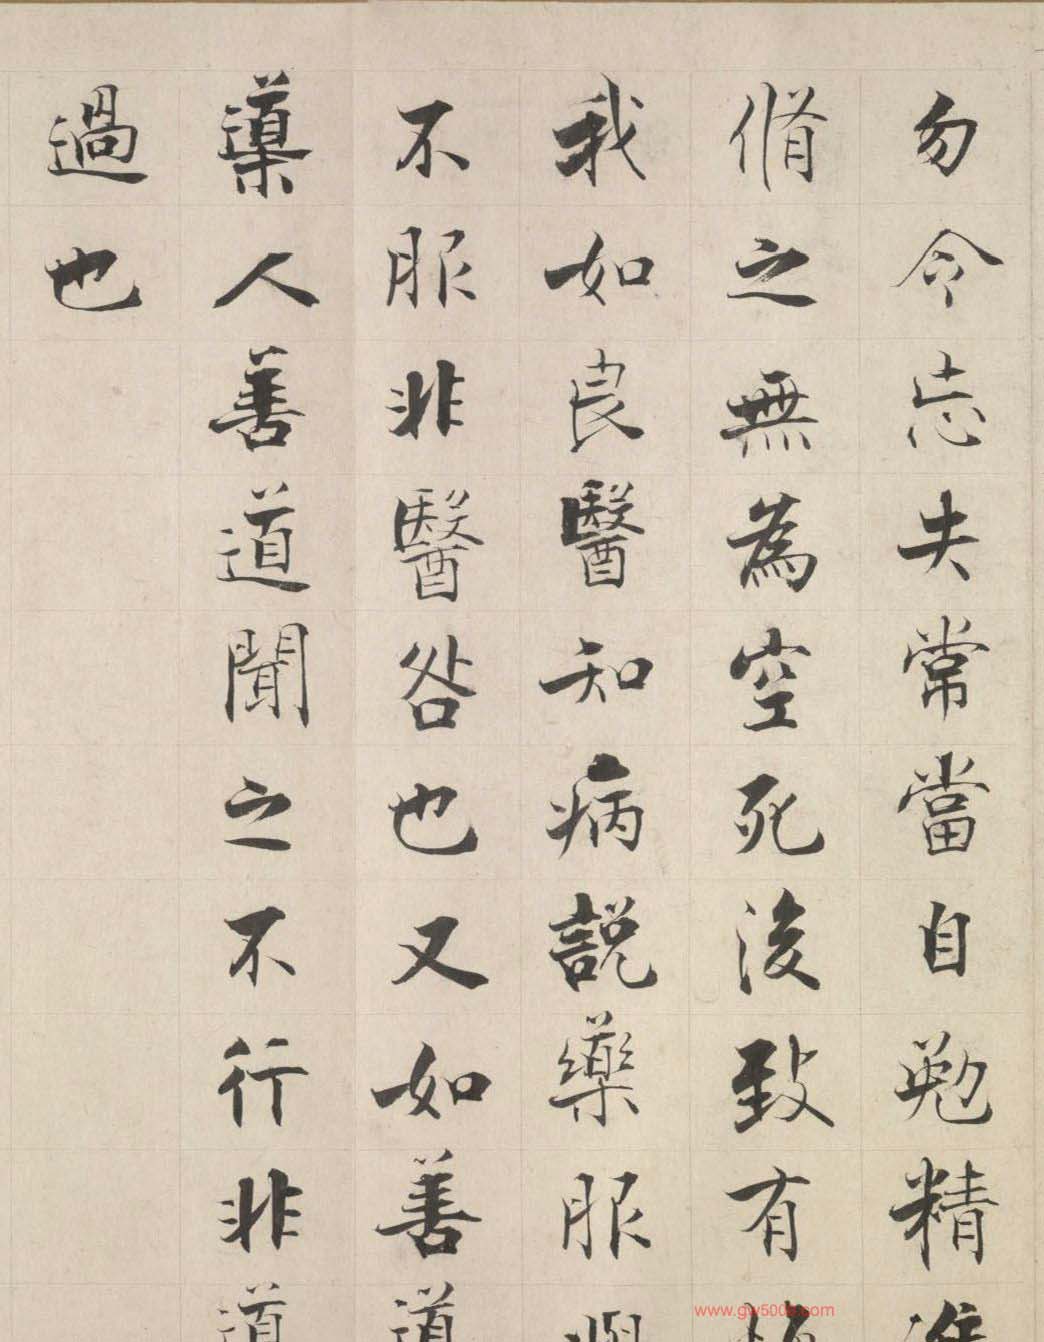 勿令忘失常當自勉精
脩之無為空死後致有
我如良醫知病說藥服
不服非醫咎也又如善
導人善道聞之不行非
過也